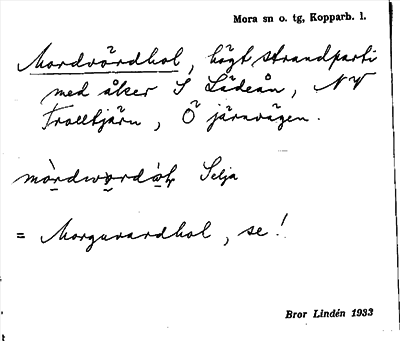 Mora sn o. tg, Kopparb. l.
Mordvårdhol, högt strandparti
med åker S Lädeån, NV
Trolltjärn, Ö järnvägen.
Selja
= Morguvardhol, se!
Bror Lindén 1933